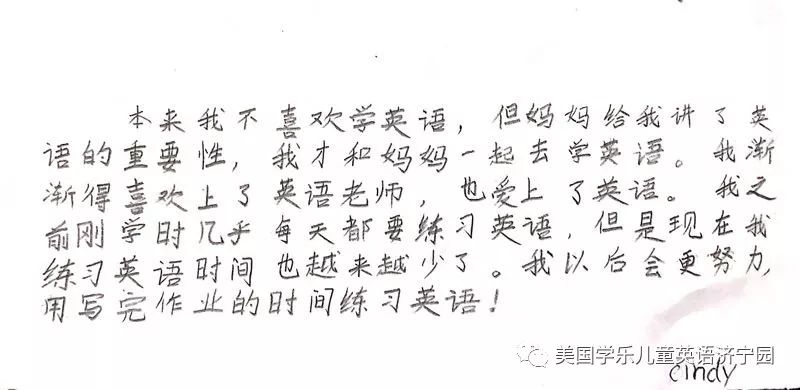 本来我不喜欢学英语，但妈妈给我讲了英
语的重要性，我才和妈妈一起去学英语。我渐
渐得喜欢上了英语老师，也爱上了英语。我之
前刚学时几乎每天都要练习英语，但是现在我
练习英语时间也越来越少了。我以后会更努力，
用写完作业的时间练习英语！
美国学乐儿童英语济宁园
cindy